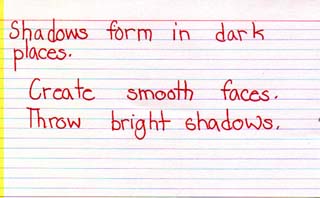 Shadows form in dark
places.
Create smooth faces.
Throw bright shadows.